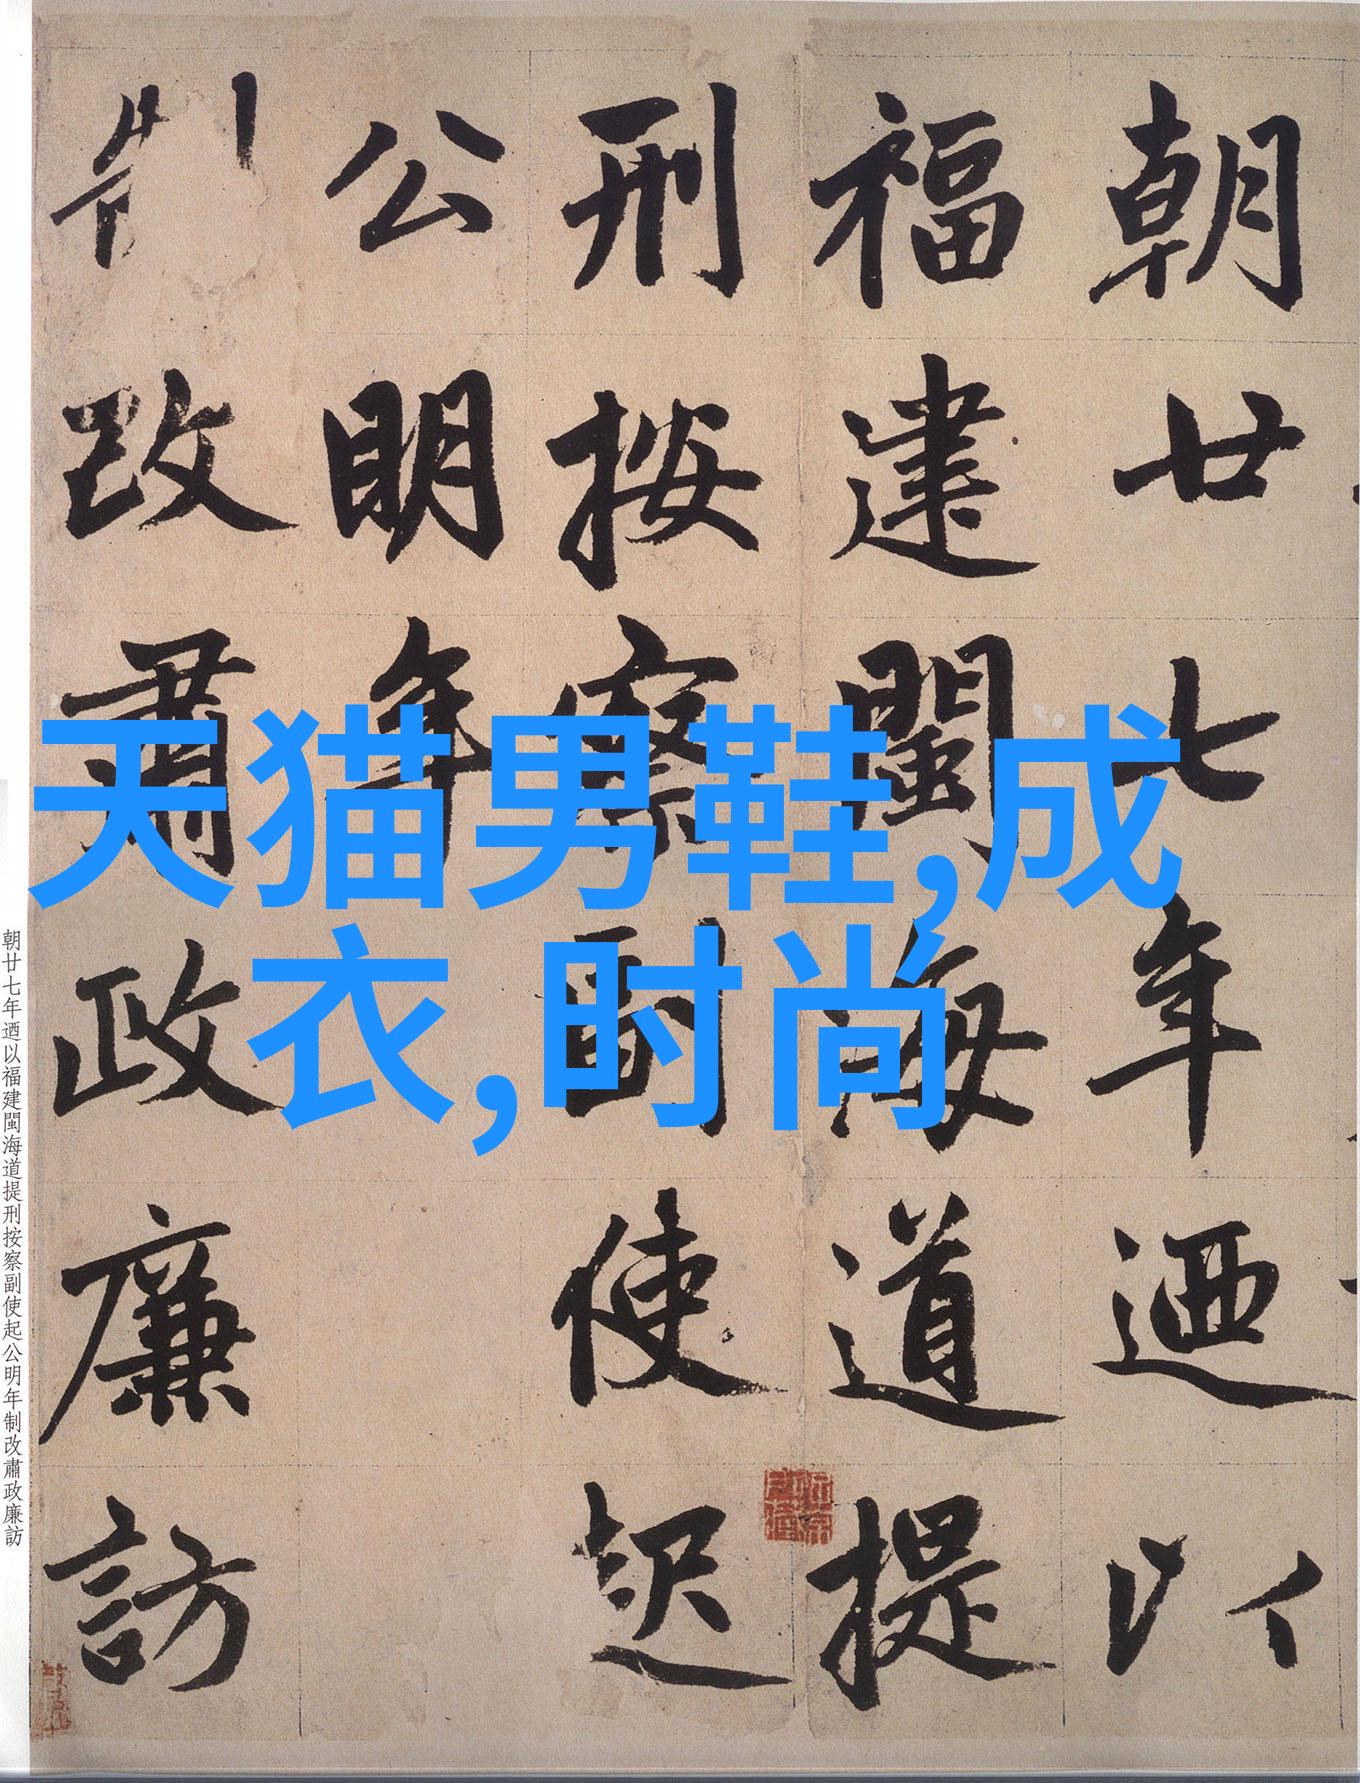 朝廿七年迺以
福建閩海道提
刑按察副使起
公明年
制改肅政廉訪
天猫男鞋,成
衣,时尚
朝廿七年迺以福建閩海道提刑按察副使起公明年制改肅政廉訪